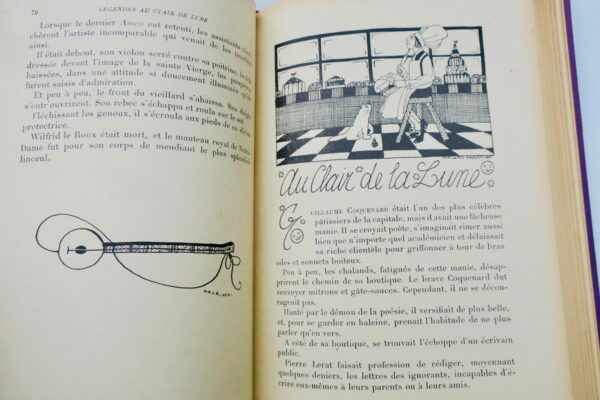 70
LÉGENDES AU CLAIR DE LUNE
Lorsque le dernier Amen eut retenti, les assistants
chèrent l'artiste incomparable qui venait de les
ainsi.
Il était debout, son violon serré contre sa poitrine, la
dressée devant l'image de la sainte Vierge, les
baissées, dans une attitude si doucement illuminée
furent saisis d'admiration.
Et peu à peu, le front du vieillard s'abaissa. Ses
s'entr'ouvrirent. Son rebec s'échappa et roula sur le sol.
Fléchissant les genoux, il s'écroula aux pieds de sa
protectrice.
Wilfrid le Roux était mort, et le manteau royal de
Dame fut pour son corps de mendiant le plus
linceul.
Au Clair de la Lune
GUILLAUME COQUENARD était l'un des plus célèbres
pâtissiers de la capitale, mais il avait une fâcheuse
manie. Il se croyait poète, s'imaginait rimer aussi
bien que n'importe quel académicien et délaissait
sa riche clientèle pour griffonner à tour de bras
odes et sonnets boiteux.
Peu à peu, les chalands, fatigués de cette manie, désap-
prirent le chemin de sa boutique. Le brave Coquenard dut
renvoyer mitrons et gâte-sauces. Cependant, il ne se décou-
rageait pas.
Hanté par le démon de la poésie, il versifiait de plus belle,
et, pour se garder en haleine, prenait l'habitude de ne plus
parler qu'en vers.
A côté de sa boutique, se trouvait l'échoppe d'un écrivain
public.
Pierre Lerat faisait profession de rédiger, moyennant
quelques deniers, les lettres des ignorants, incapables d'é-
crire eux-mêmes à leurs parents ou à leurs amis.